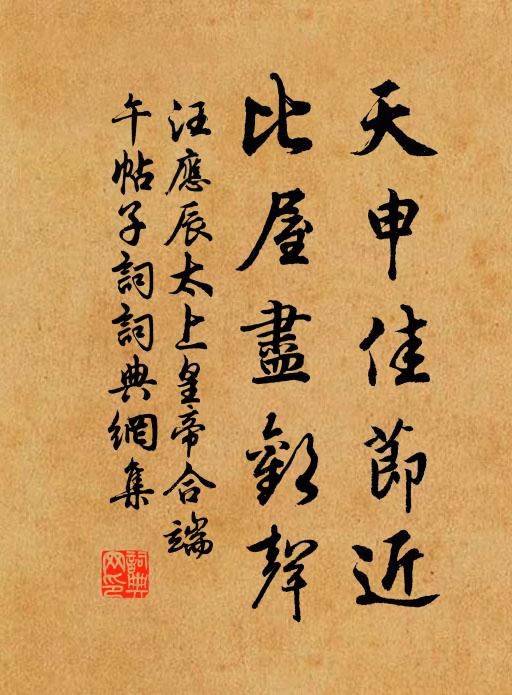 天申佳節近
比屋盡歡聲
汪應辰太上皇帝合端
午帖子詞詞典網集
詞典網印